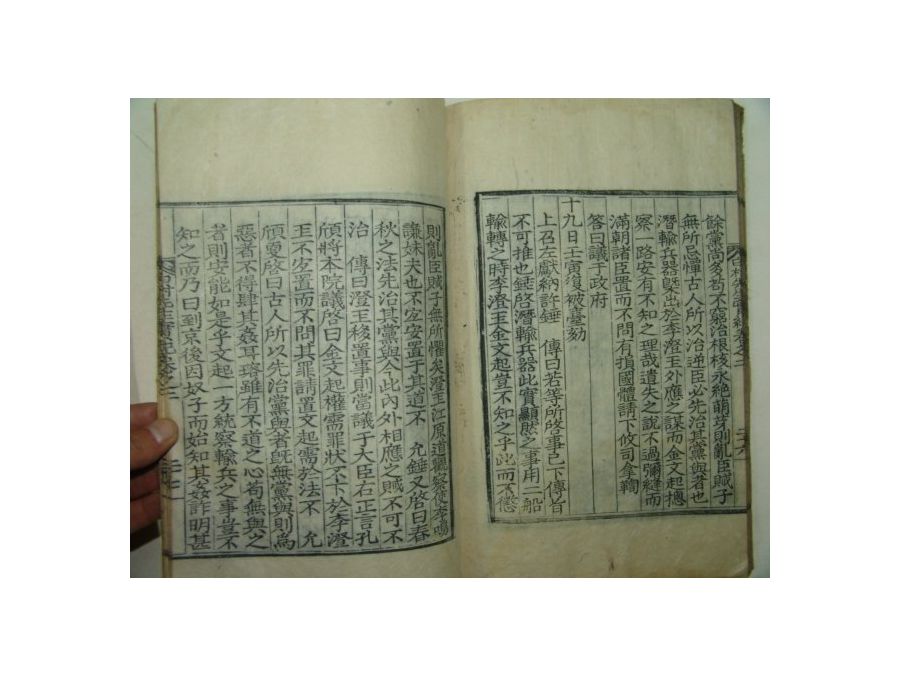 餘黨尚多苟不窮治根核永絶萌芽則亂臣賊子
無所忌憚古人所以治逆臣必先治其黨與者也
潛輸兵器旣出於李澄玉外應之謀而金文起摠
察一路安有不知之理哉遺失之說不過彌縫而
滿朝諸臣置而不問有損國體請下攸司拿鞫
答曰議于政府
十九日壬寅復被臺劾
上召左獻納許錘 傳曰若等所啓事已下傳旨
不可推也錘啓潛輸兵器此實顯然之事用二船
輸轉之時李澄玉金文起豈不知之乎此而不懲
則亂臣賊子無所懼矣澄玉江原道觀察使李鳴
謙妹夫也不宜安置于其道不 允錘又啓曰春
秋之法先治其黨與今此內外相應之賊不可不
治 傳曰澄玉移置事則當議于大臣右正言孔
頎將本院議啓曰金文起權需罪狀不下於李澄
玉不宜置而不問其罪請置文起需於法不 允
頎更啓曰古人所以先治黨與者旣無黨與則爲
惡者不得肆其姦耳瑢雖有不道之心苟無與之
者則安能如是乎文起一方統察輸兵之事豈不
知之而乃曰到京後因奴子而始知其姦詐明甚